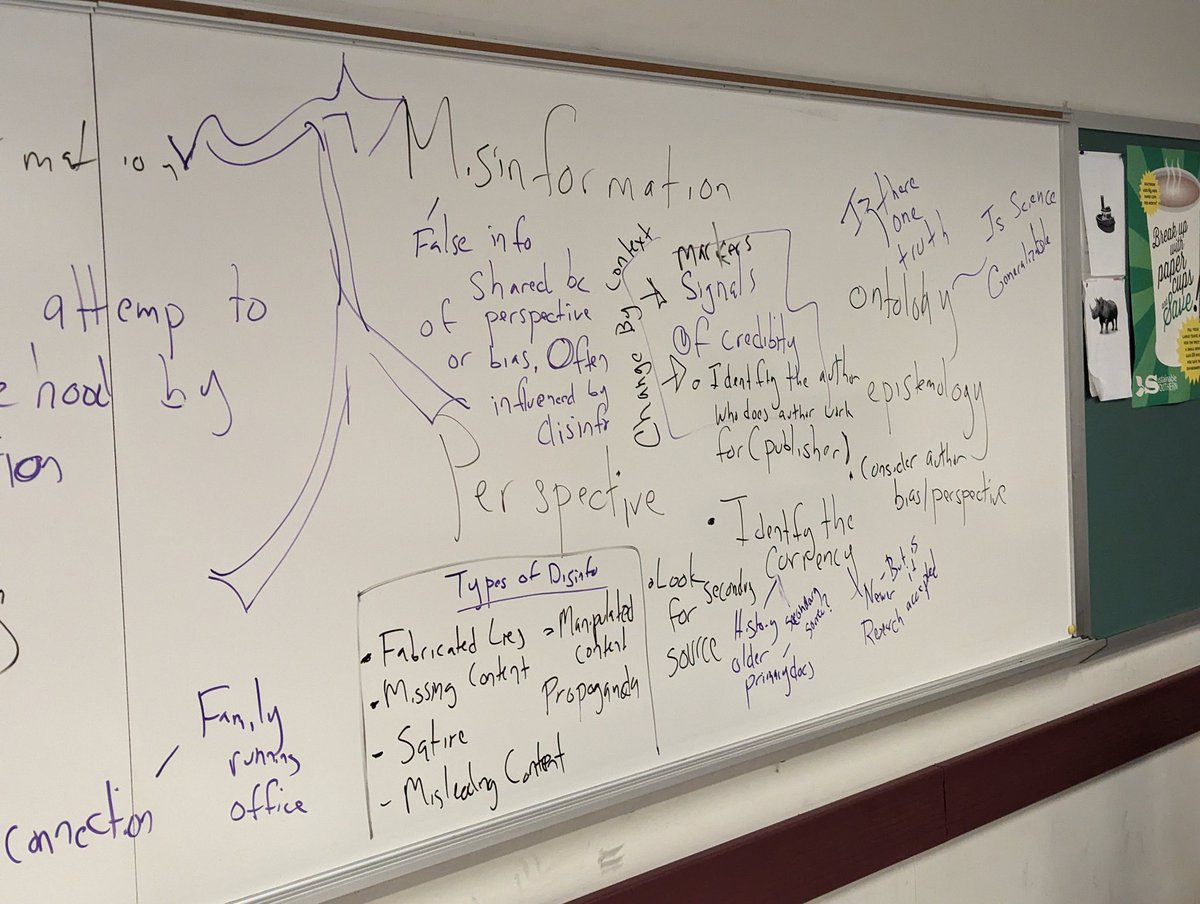 mation
attemp to
e hood by
tion
connection
Family
running
office
Misinformation
False info
Shared bc
of perspective
or bias, Often
influenced by
disinfo
Perspective
Types of Disinfo
• Fabricated Lies
• Missing Content
- Satire
- Misleading Content
= Manipulated
content
Propaganda
Change By Context
Markers
Signals
Of credibility
Identify the author
Who does author work
for (publisher)
• Consider author
bias/perspective
• Identify the
Currency
• Look
for secondary
source
History
older
primary docs
secondary
Newer
- But is
it
Research accepted
Is there
one
truth
ontology
Is Science
Generalizable
epistemology
Break up
with
paper
cups
and
Save!
Sustainable
SOUTHERN